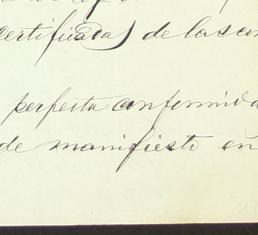 certificadas de las can
perfecta conformida
de manifiesto en